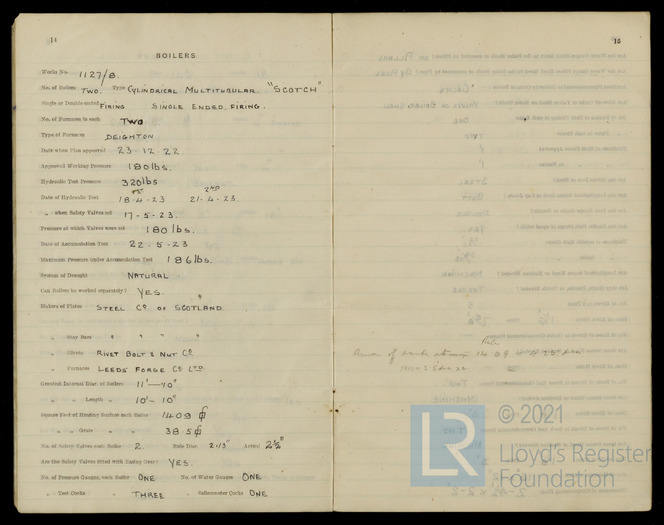 14
BOILERS.
Works No. 1127/8.
No. of Boilers TWO. Type CYLINDRICAL MULTITUBULAR. "SCOTCH"
Single or Double-ended FIRING SINGLE ENDED FIRING.
No. of Furnaces in each TWO
Type of Furnaces DEIGHTON
Date when Plan approved 23-12-22
Approved Working Pressure 180 lbs.
Hydraulic Test Pressure 320 lbs
Date of Hydraulic Test 1ST 18-4-23 2ND 21-4-23.
" when Safety Valves set 17-5-23.
Pressure at which Valves were set 180 lbs.
Date of Accumulation Test 22-5-23
Maximum Pressure under Accumulation Test 186 lbs.
System of Draught NATURAL
Can Boilers be worked separately? YES.
Makers of Plates STEEL Co OF SCOTLAND
" Stay Bars " " " "
" Rivets RIVET BOLT & NUT Co
" Furnaces LEEDS FORGE Co LTD
Greatest Internal Diam. of Boilers 11'-10"
" " Length " 10'-10"
Square Feet of Heating Surface each Boiler 1409
" " Grate " 38.5
No. of Safety Valves each Boiler 2. Rule Diam. 2.13" Actual 2½"
Are the Safety Valves fitted with Easing Gear? YES.
No. of Pressure Gauges, each Boiler ONE No. of Water Gauges ONE
" Test Cocks " THREE " Salinometer Cocks ONE
15
© 2021
LR
Lloyd's Register
Foundation